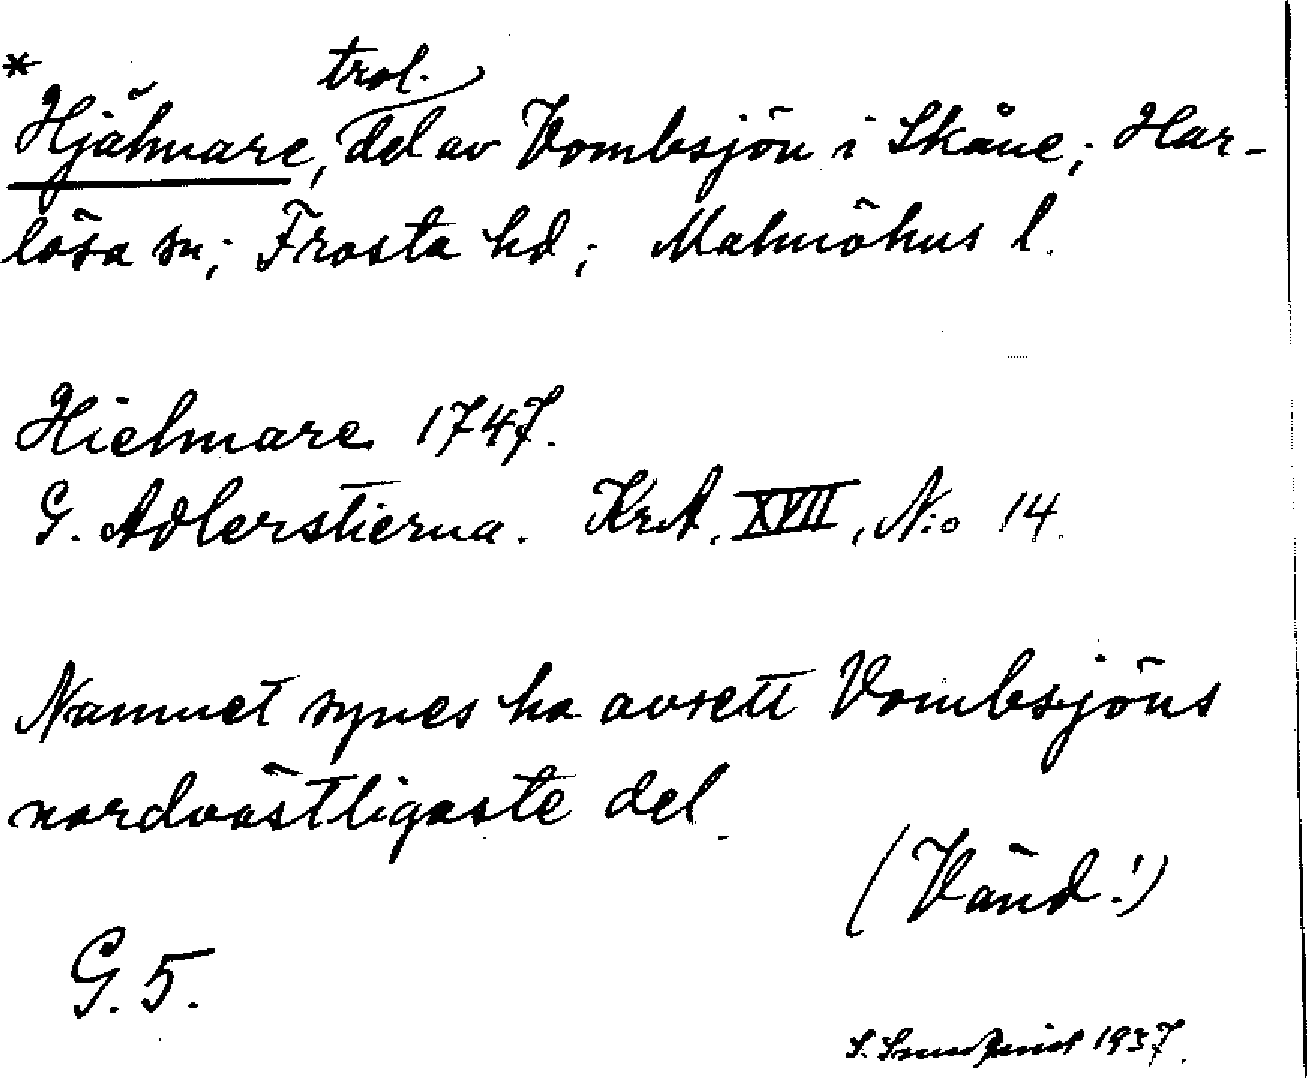 * Hjälmare, trol. del av Vombsjön i Skåne; Har-
lösa sn; Frosta hd; Malmöhus l.
Hielmare 1747.
G. Adlerstierna. KrA, XVII, N:o 14.
Namnet synes ha avsett Vombsjöns
nordvästligaste del.
(Vänd!)
G. 5.
S. 1937.